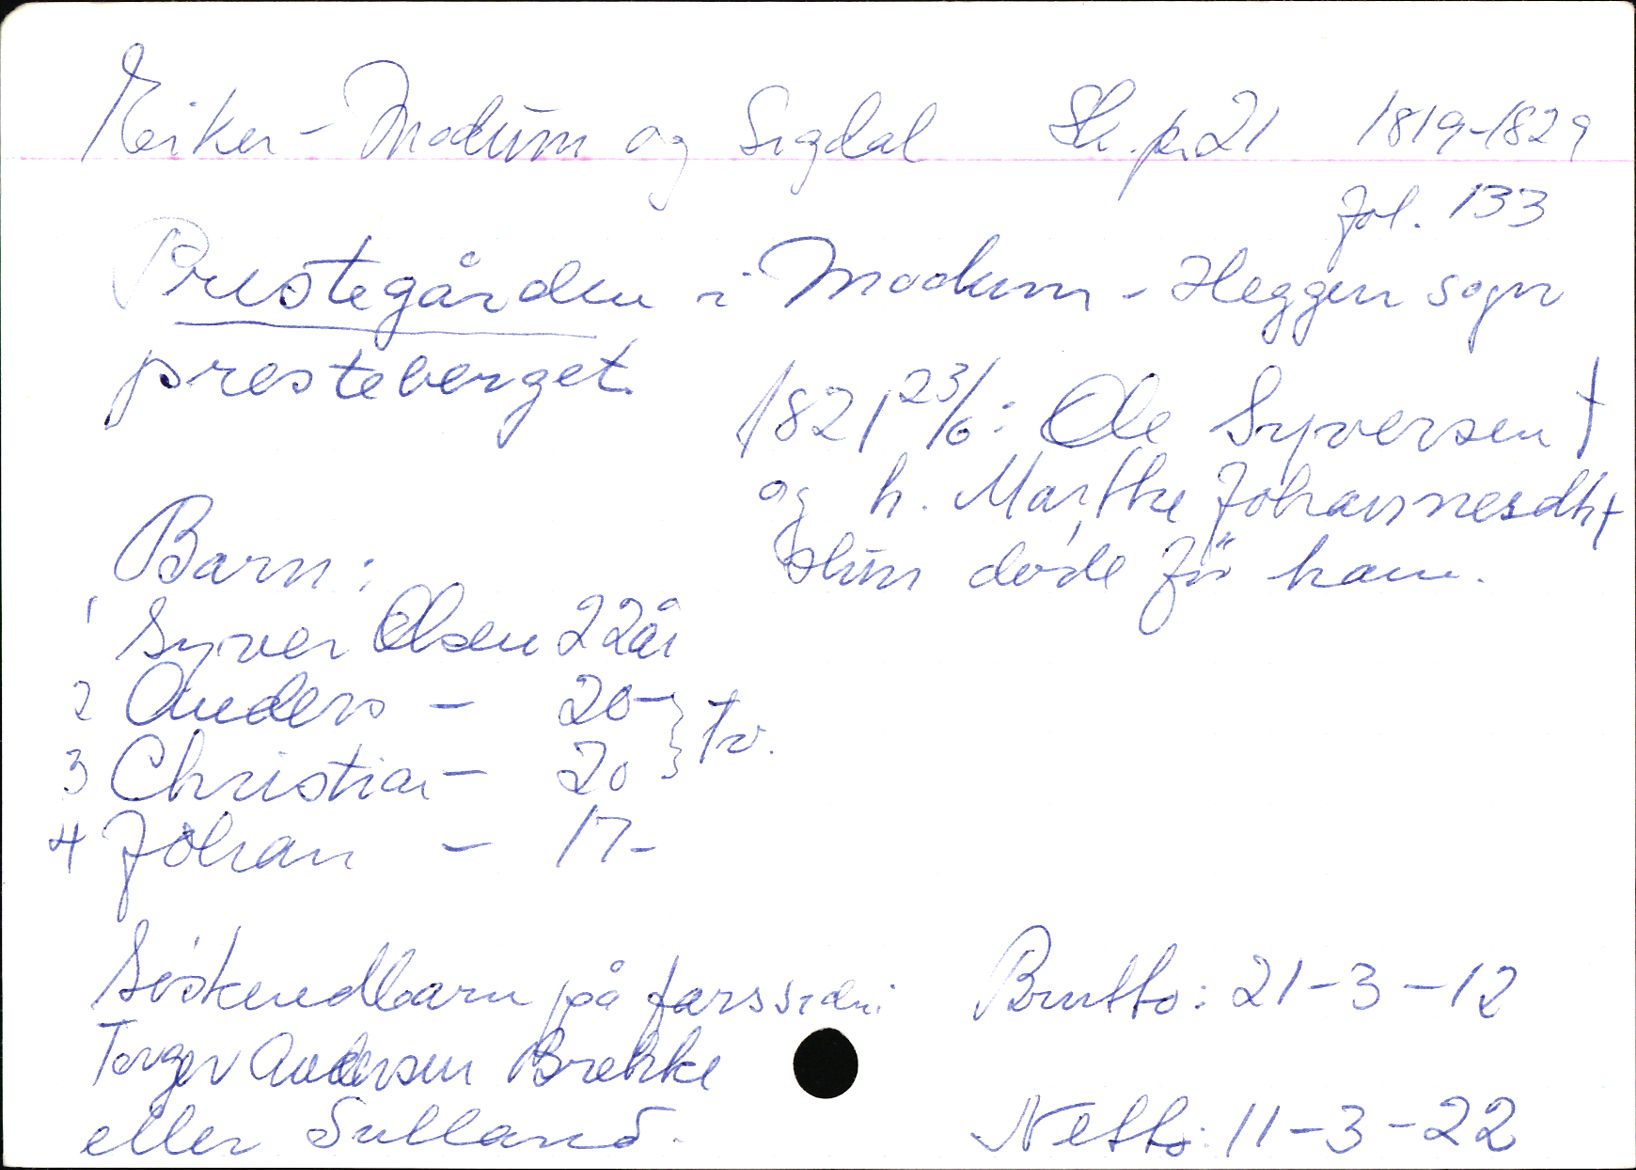 Eiker - Modum og Sigdal Sk.pr. 21 1819-1829
fol. 133
Prestegården i Modum - Heggen sogn
presteberget.
1821 23/6: Ole Syversen †
og h. Marthe Johannesdtr
Hun døde før ham.
Barn:
1 Syver Olsen 22 år
2 Anders - 20 - } tv.
3 Christian - 20
4 Johan - 17 -
Søskendbarn på farssiden:
Torger Andersen Brekke
eller Sulland.
Brutto: 21-3-12
Netto: 11-3-22